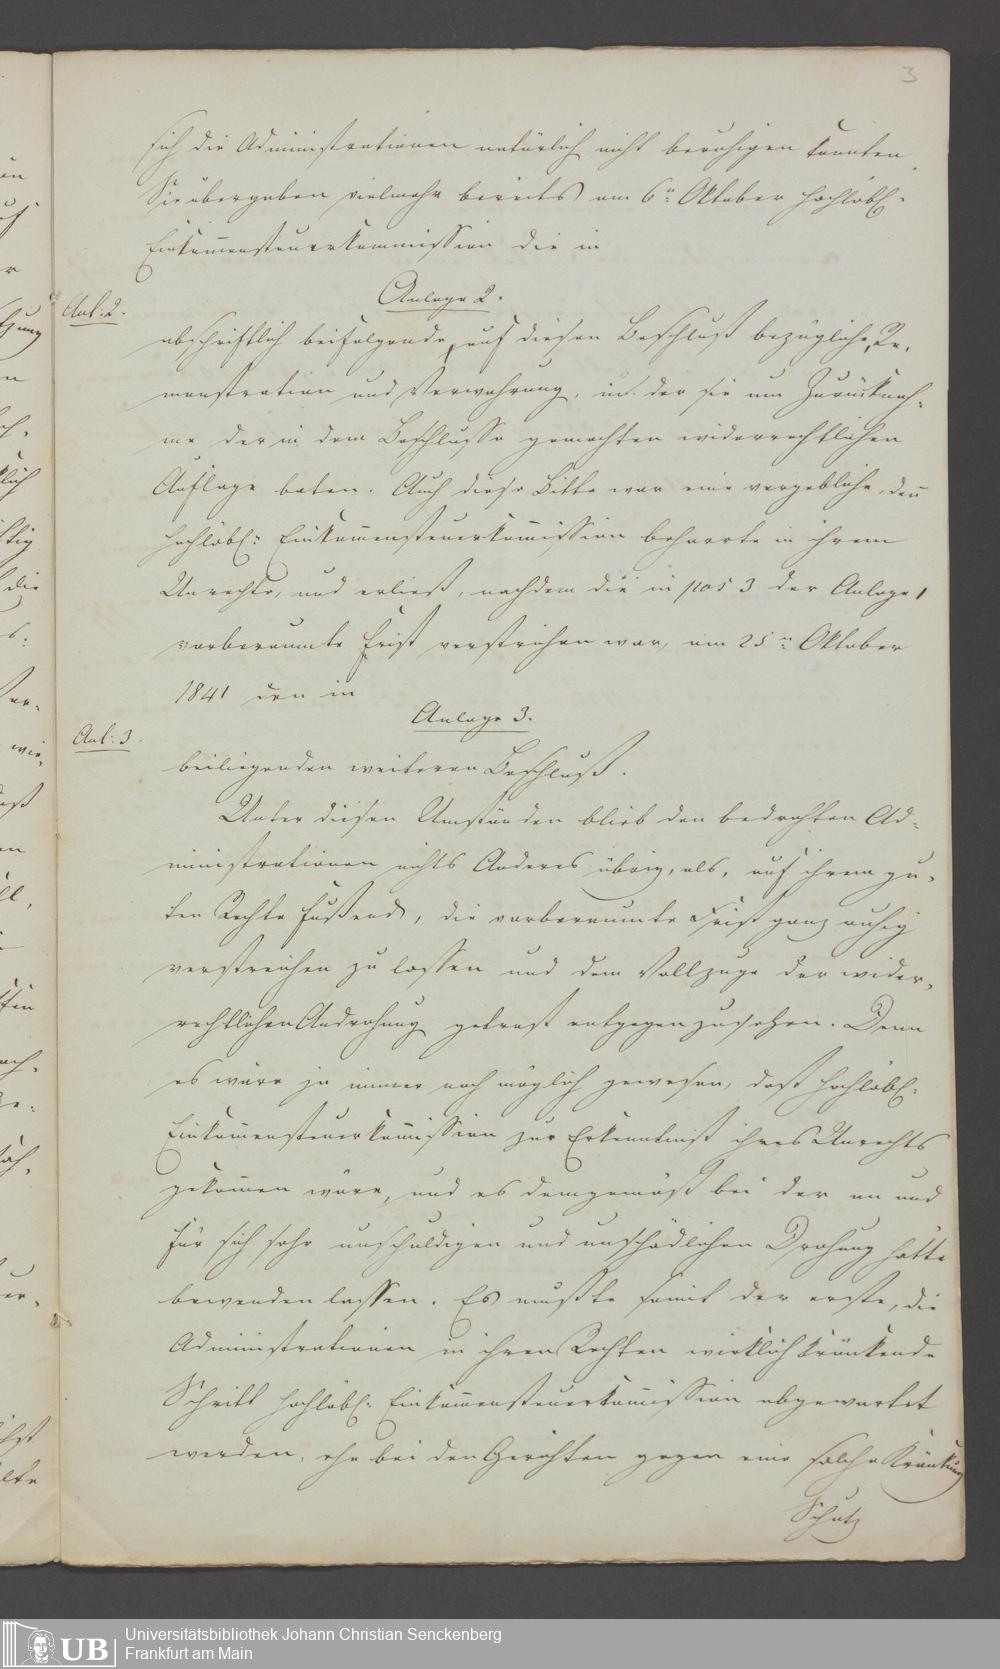 3
sich die Administrationen natürlich nicht beruhigen konnten.
Sie übergaben vielmehr bereits am 6n Oktober hochlöbl:
Einkommensteuerkommission die in
Anlage 2.
Anl: 2.
abschriftlich beifolgende, auf diesen Beschluß bezügliche, Re-
monstration und Verwahrung, in der sie um Zurücknah-
me der in dem Beschlusse gemachten widerrechtlichen
Auflage baten. Auch diese Bitte war eine vergebliche, den̄
hochlöbl: Einkom̄ensteuerkom̄ission beharrte in ihrem
Unrechte, und erließ, nachdem die in pos 3 der Anlage 1
vorberaumte Frist verstrichen war, am 25n Oktober
1841 den in
Anlage 3.
Anl: 3.
beiliegenden weiteren Beschluß.
Unter diesen Umständen blieb den bedrohten Ad-
ministrationen nichts Anderes übrig, als, auf ihrem gu-
ten Rechte fußend, die vorberaumte Frist ganz ruhig
verstreichen zu lassen und dem Vollzuge der wider-
rechtlichen Androhung getrost entgegenzusehen. Denn
es wäre ja immer noch möglich gewesen, daß hochlöbl:
Einkom̄ensteuerkom̄ission zur Erkenntniß ihres Unrechts
gekom̄en wäre, und es demgemäß bei der an und
für sich sehr unschuldigen und unschädlichen Drohung hätte
bewenden lassen. Es mußte somit der erste, die
Administrationen in ihren Rechten wirklich kränkende
Schritt hochlöbl: Einkom̄ensteuerkom̄ission abgewartet
werden, ehe bei den Gerichten gegen eine solche Kränkung
Schutz
UB
Universitätsbibliothek Johann Christian Senckenberg
Frankfurt am Main